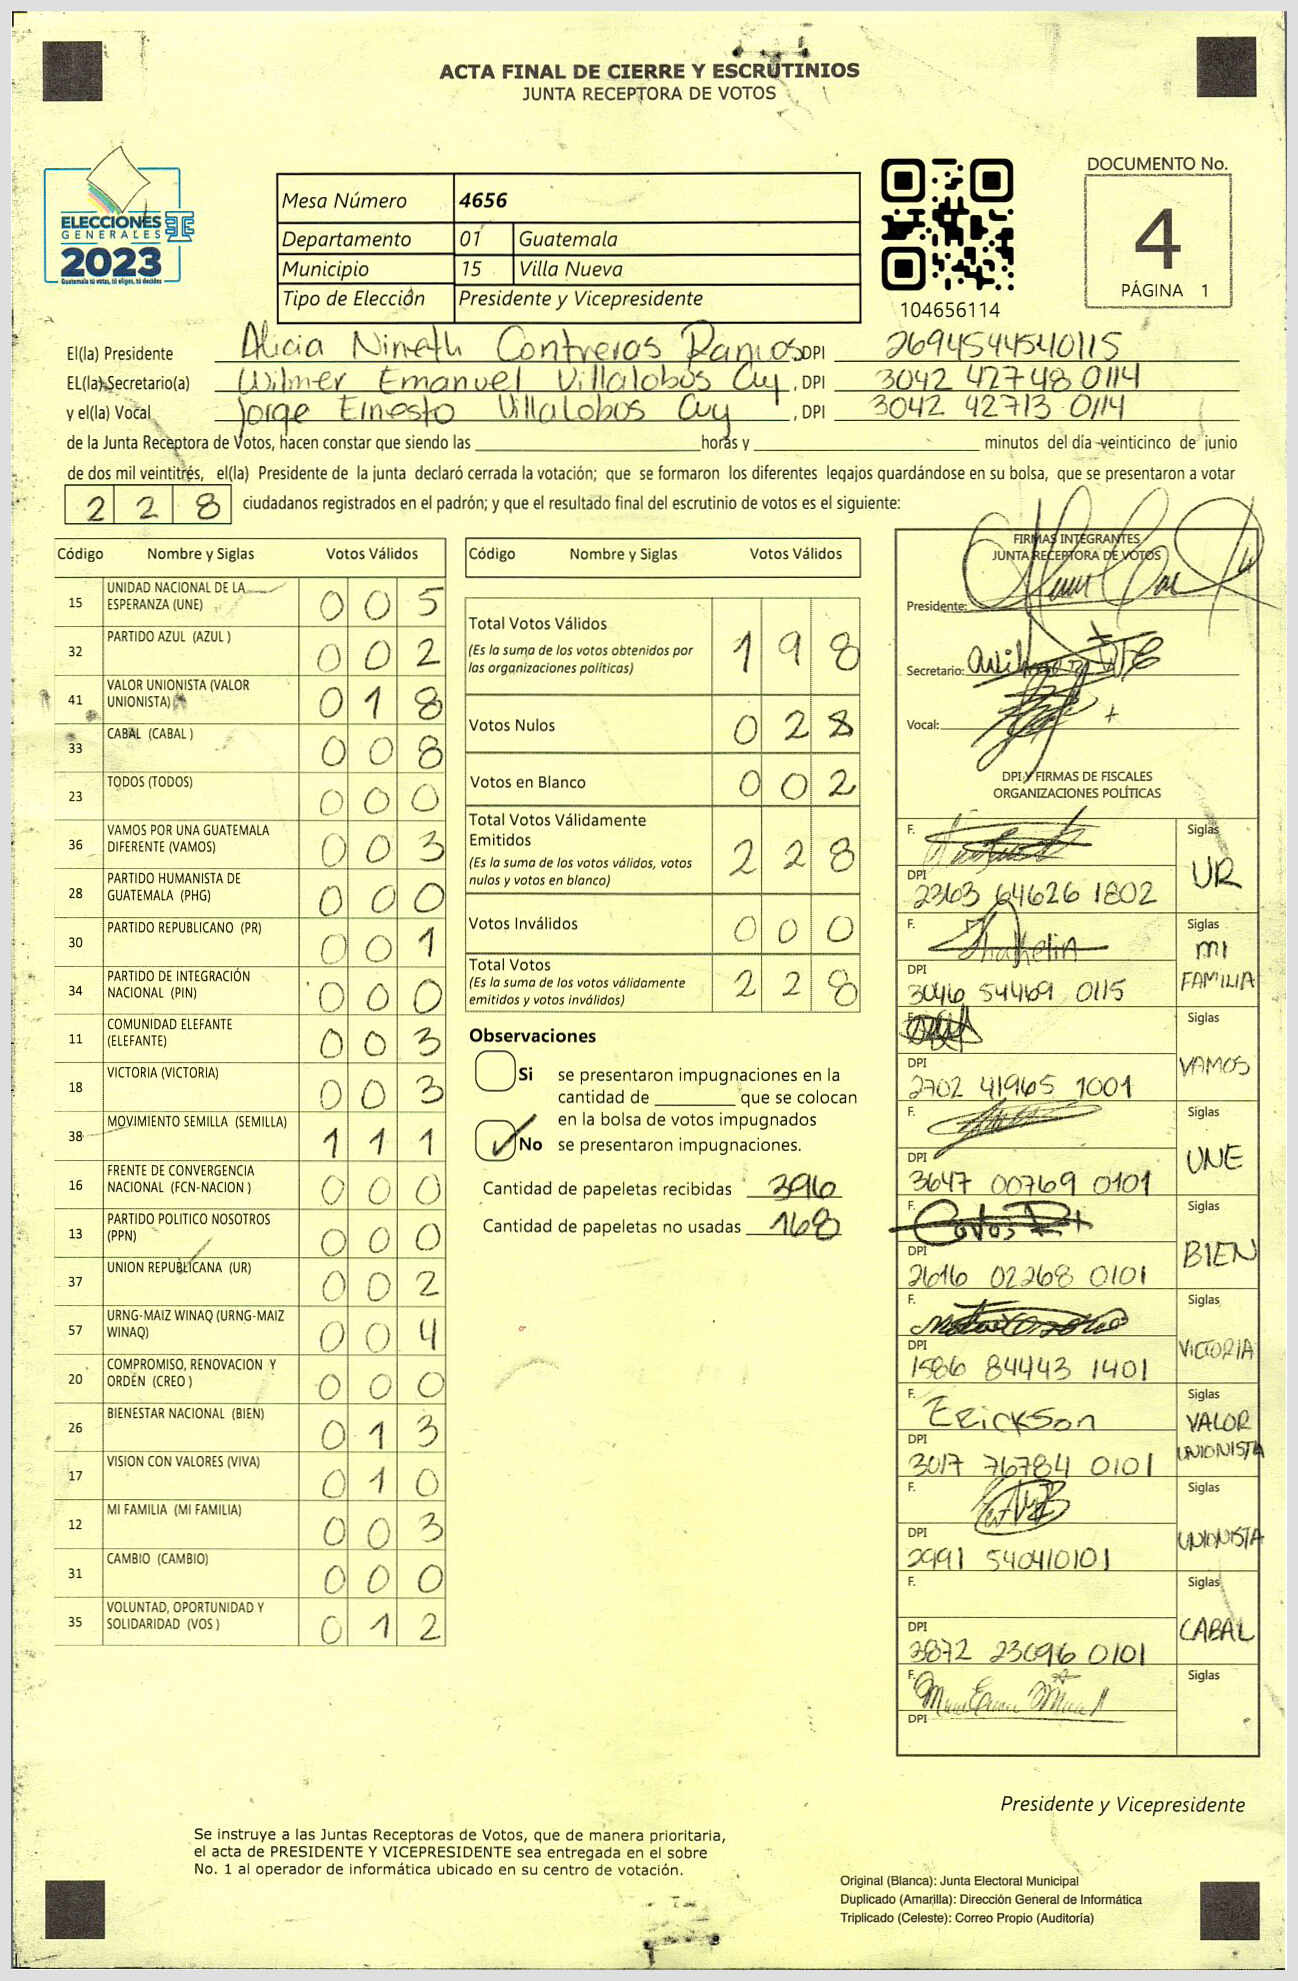 ACTA FINAL DE CIERRE Y ESCRUTINIOS
JUNTA RECEPTORA DE VOTOS
ELECCIONES
GENERALES
2023
Guatemala tú votas, tú eliges, tú decides
Mesa Número 4656
Departamento 01 Guatemala
Municipio 15 Villa Nueva
Tipo de Elección Presidente y Vicepresidente
104656114
DOCUMENTO No.
4
PÁGINA 1
El(la) Presidente Alicia Nineth Contreras Ramos DPI 2694544540115
EL(la) Secretario(a) Wilmer Emanuel Villalobos Cuy , DPI 3042 42748 0114
y el(la) Vocal Jorge Ernesto Villalobos Cuy , DPI 3042 42713 0114
de la Junta Receptora de Votos, hacen constar que siendo las horas y minutos del día veinticinco de junio
de dos mil veintitrés, el(la) Presidente de la junta declaró cerrada la votación; que se formaron los diferentes legajos guardándose en su bolsa, que se presentaron a votar
2 2 8 ciudadanos registrados en el padrón; y que el resultado final del escrutinio de votos es el siguiente:
Código Nombre y Siglas Votos Válidos
15 UNIDAD NACIONAL DE LA
ESPERANZA (UNE) 0 0 5
32 PARTIDO AZUL (AZUL ) 0 0 2
41 VALOR UNIONISTA (VALOR
UNIONISTA) 0 1 8
33 CABAL (CABAL ) 0 0 8
23 TODOS (TODOS) 0 0 0
36 VAMOS POR UNA GUATEMALA
DIFERENTE (VAMOS) 0 0 3
28 PARTIDO HUMANISTA DE
GUATEMALA (PHG) 0 0 0
30 PARTIDO REPUBLICANO (PR) 0 0 1
34 PARTIDO DE INTEGRACIÓN
NACIONAL (PIN) 0 0 0
11 COMUNIDAD ELEFANTE
(ELEFANTE) 0 0 3
18 VICTORIA (VICTORIA) 0 0 3
38 MOVIMIENTO SEMILLA (SEMILLA) 1 1 1
16 FRENTE DE CONVERGENCIA
NACIONAL (FCN-NACION ) 0 0 0
13 PARTIDO POLITICO NOSOTROS
(PPN) 0 0 0
37 UNION REPUBLICANA (UR) 0 0 2
57 URNG-MAIZ WINAQ (URNG-MAIZ
WINAQ) 0 0 4
20 COMPROMISO, RENOVACION Y
ORDEN (CREO ) 0 0 0
26 BIENESTAR NACIONAL (BIEN) 0 1 3
17 VISION CON VALORES (VIVA) 0 1 0
12 MI FAMILIA (MI FAMILIA) 0 0 3
31 CAMBIO (CAMBIO) 0 0 0
35 VOLUNTAD, OPORTUNIDAD Y
SOLIDARIDAD (VOS ) 0 1 2
Código Nombre y Siglas Votos Válidos
Total Votos Válidos
(Es la suma de los votos obtenidos por
las organizaciones políticas) 1 9 8
Votos Nulos 0 2 8
Votos en Blanco 0 0 2
Total Votos Válidamente
Emitidos
(Es la suma de los votos válidos, votos
nulos y votos en blanco) 2 2 8
Votos Inválidos 0 0 0
Total Votos
(Es la suma de los votos válidamente
emitidos y votos inválidos) 2 2 8
Observaciones
Si se presentaron impugnaciones en la
cantidad de que se colocan
en la bolsa de votos impugnados
No se presentaron impugnaciones.
Cantidad de papeletas recibidas 396
Cantidad de papeletas no usadas 168
FIRMAS INTEGRANTES
JUNTA RECEPTORA DE VOTOS
Presidente:
Secretario:
Vocal:
DPI Y FIRMAS DE FISCALES
ORGANIZACIONES POLÍTICAS
F. Siglas
UR
DPI
2363 64626 1802
F. Siglas
MI
FAMILIA
DPI
3046 54469 0115
Siglas
VAMOS
DPI
2702 41965 1001
F. Siglas
UNE
DPI
3647 00769 0101
F. Siglas
BIEN
DPI
2616 02268 0101
F. Siglas
VICTORIA
DPI
1586 84443 1401
F. Erickson Siglas
VALOR
UNIONISTA
DPI
3017 76784 0101
F. Siglas
UNIONISTA
DPI
2991 540410101
F. Siglas
CABAL
DPI
3872 23096 0101
F. Siglas
DPI
Presidente y Vicepresidente
Se instruye a las Juntas Receptoras de Votos, que de manera prioritaria,
el acta de PRESIDENTE Y VICEPRESIDENTE sea entregada en el sobre
No. 1 al operador de informática ubicado en su centro de votación.
Original (Blanca): Junta Electoral Municipal
Duplicado (Amarilla): Dirección General de Informática
Triplicado (Celeste): Correo Propio (Auditoría)